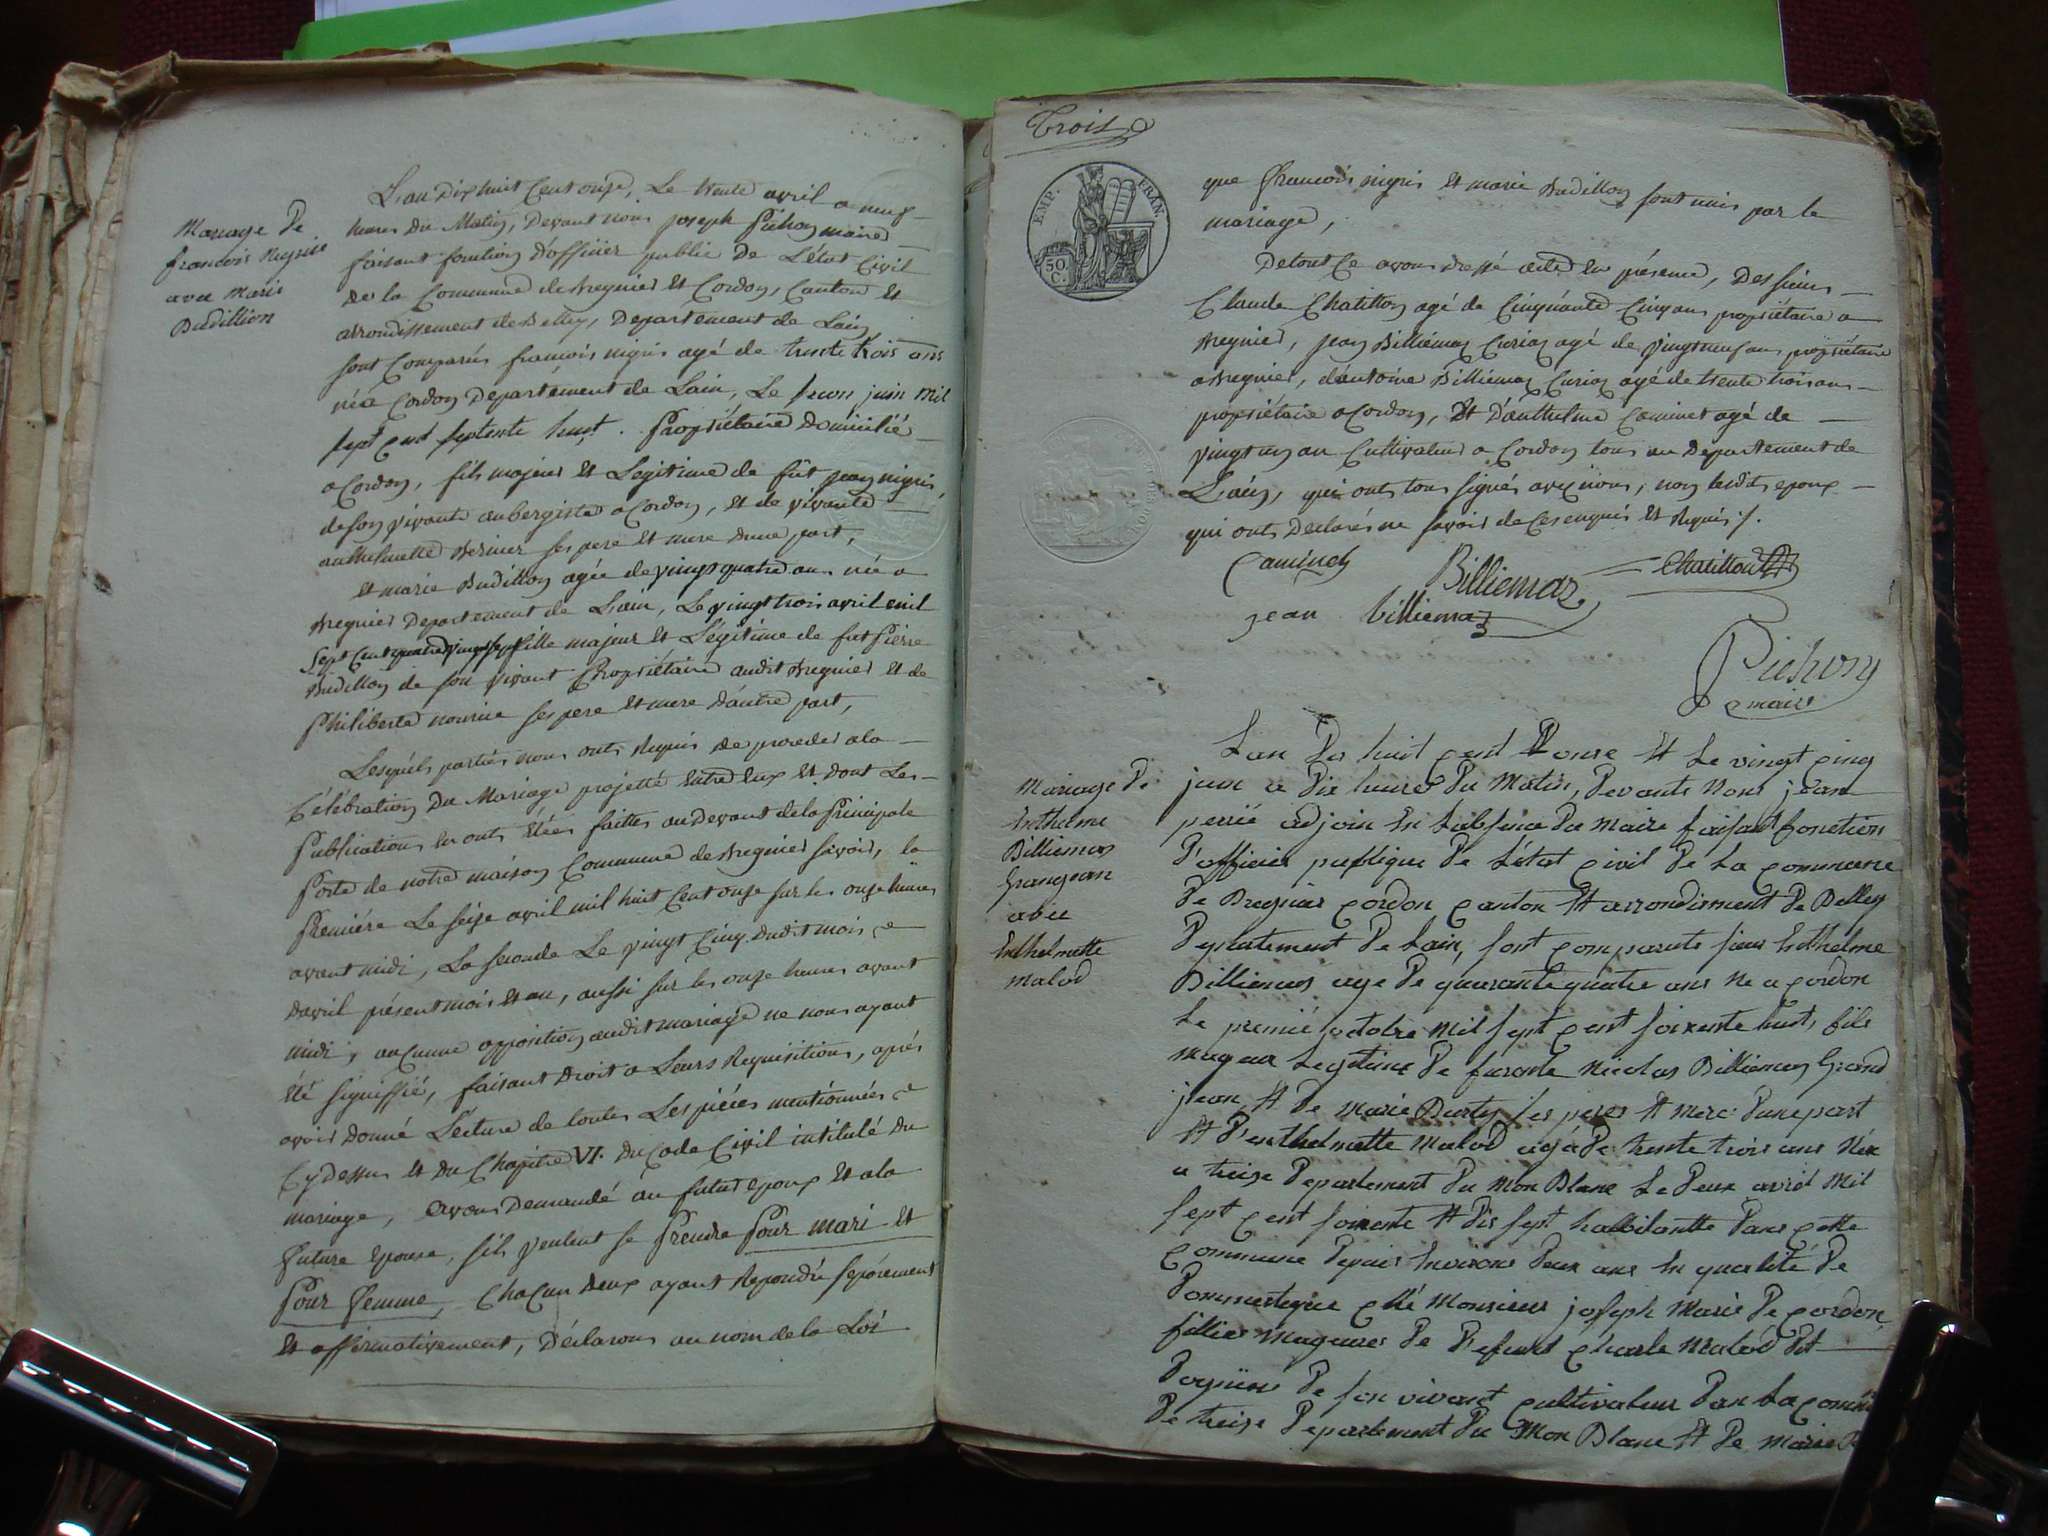 Mariage de
francois Nigris
avec Marie
Budillion
L'an Dix huit Cent onze, Le trente avril a neuf
heures du Matin, Devant nous joseph Pichon maire
faisant fonction d'officier public de L'état Civil
de la Commune de Bregnier et Cordon, Canton et
arrondissement de Belley, Departement de Lain,
sont Comparus francois nigris agé de trente trois ans
né a Cordon Departement de Lain, Le juin Mil
sept cent septente huit. Propriétaire domicilié
a Cordon, fils majeur et Legitime de fût jean nigris,
de son vivant aubergiste a Cordon, et de vivante
anthelmette ses pere et mere dune part,
et marie Budillon agée de vingt quatre ans née a
Bregnier Departement de Lain, Le vingt trois avril mil
sept Cent quatre vingt sept fille majeur et Légitime de fut Pierre
Budillon de son vivant Propriétaire audit Bregnier et de
Philiberte nourice ses pere et mere d'autre part,
Lesquels partiés nous onts Requis de proceder a la
Célébration du Mariage projetté entre eux et dont Les
Publications en onts étées faittes au Devant de la Principale
Porte de notre maison Commune de Bregnier savoir, la
Premiére Le seize avril mil huit Cent onze sur les onze heures
avant midi, La seconde Le vingt Cinq dudit mois
davril présent mois et an, aussi sur les onze heures avant
midi, aucunne opposition audit mariage ne nous ayant
été signiffié, faisant droit a Leurs Requisitions, aprés
avoir donné Lecture de toutes Les piéces mentionnées
Cy dessus et du Chapitre VI. du Code Civil intitulé du
mariage, avons Demandé au futur epoux et a la
future epouse, s'ils veulent se Prendre Pour mari et
Pour femme, Chacun deux ayant Repondu separement
et affirmativement, Déclarons au nom de la Loi
Trois
EMP. FRAN.
50
C.
que francois nigris et marie Budillon sont unis par le
mariage,
De tout Ce avons dressé acte en présence, Des sieurs
Claude Chatillon agé de Cinquante Cinq ans propriétaire a
Bregnier, jean Billiemaz Curiaz agé de vingt neuf ans propriétaire
a Bregnier, d'antoine Billiemaz Curiaz agé de trente trois ans
propriétaire a Cordon, Et D'anthelme Caminet agé de
vingt ans Cultivateur a Cordon tous au Departement de
Lain, qui onts tous signés avec nous, non lesdits epoux
qui onts Déclarés ne savoir de Ces enquis et Requis /.
Caminet Billiemaz Chatillon
jean billiemaz
Pichon
maire
Mariage De
Enthelme
Billiemas
Grangean
avec
Enthelmette
malod
Lan Dix huit cent onze Et Le vingt cinq
juin a Dix heures Du Matin, Devants Nous jean
perrié adjoin En Labsence Du Maire faisant fonction
D'officier puplique De L'état civil De La commune
De Bregnier cordon canton Et arrondisment De Belley
Departement De Lain, sont comparuts sieur Enthelme
Billiemas age De quarante quatre ans Ne a cordon
Le premié octobre Mil sept cent soixente huit, fils
mageur Legitime De Nicolas Billiemas Grand
jean Et De Marie Durty ses peres Et Mere Dune part
Et D'enthelmette Malod agé De trente trois ans Née
a treize Departement Du Mon Blanc Le Deux avril Mil
sept cent soixente Et Dix sept habbitantte Dans cette
commune Depuis Environs Deux ans En qualité De
Dommestique ché Monsieur joseph Marie De cordon,
fillie mageures De Defunt charle Malod Dit
De son vivant cultivateur Dan La
De treize Departement Du Mon Blanc Et De Marie